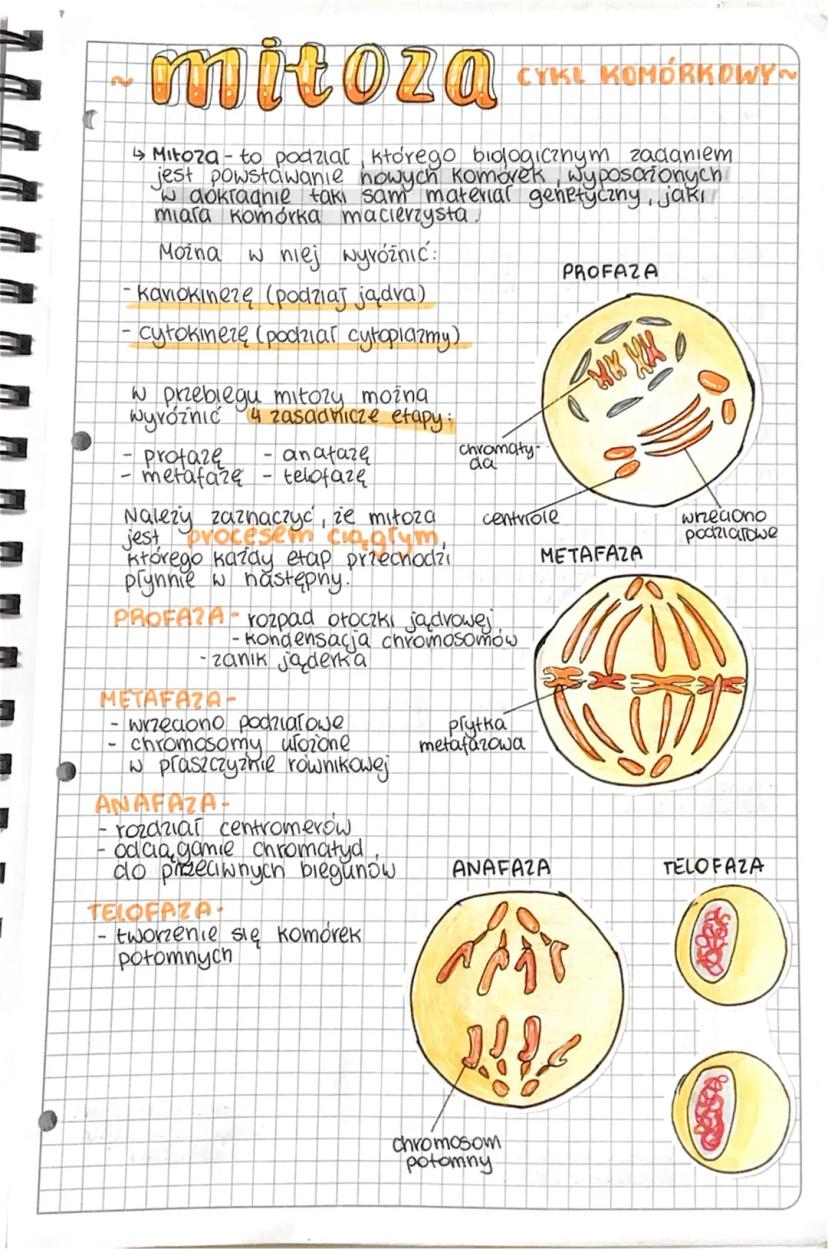 ~ mitoza CYKL KOMÓRKOWY ~
↳ Mitoza - to podział, którego biologicznym zadaniem
jest powstawanie nowych komórek, wyposażonych
w dokładnie taki sam materiał genetyczny, jaki
miała komórka macierzysta.
Można w niej wyróżnić:
- kariokinezę (podział jądra)
- cytokinezę (podział cytoplazmy)
W przebiegu mitozy można
wyróżnić 4 zasadnicze etapy:
- profazę - anafazę
- metafazę - telofazę
Należy zaznaczyć, że mitoza
jest procesem ciągłym,
którego każdy etap przechodzi
płynnie w następny.
PROFAZA - rozpad otoczki jądrowej
- kondensacja chromosomów
- zanik jąderka
METAFAZA -
- wrzeciono podziałowe
- chromosomy ułożone
w płaszczyźnie równikowej
ANAFAZA -
- rozdział centromerów
- odciąganie chromatyd
do przeciwnych biegunów
TELOFAZA -
- tworzenie się komórek
potomnych
PROFAZA
chromaty-
da
centriole
wrzeciono
podziałowe
METAFAZA
płytka
metafazowa
ANAFAZA
chromosom
potomny
TELOFAZA